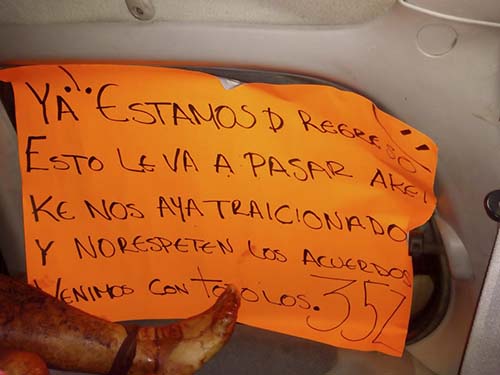 YA ESTAMOS D REGRESO
ESTO LE VA A PASAR AKEL
KE NOS AYA TRAICIONADO
Y NO RESPETEN LOS ACUERDOS
VENIMOS CON TODO LOS. 35Z